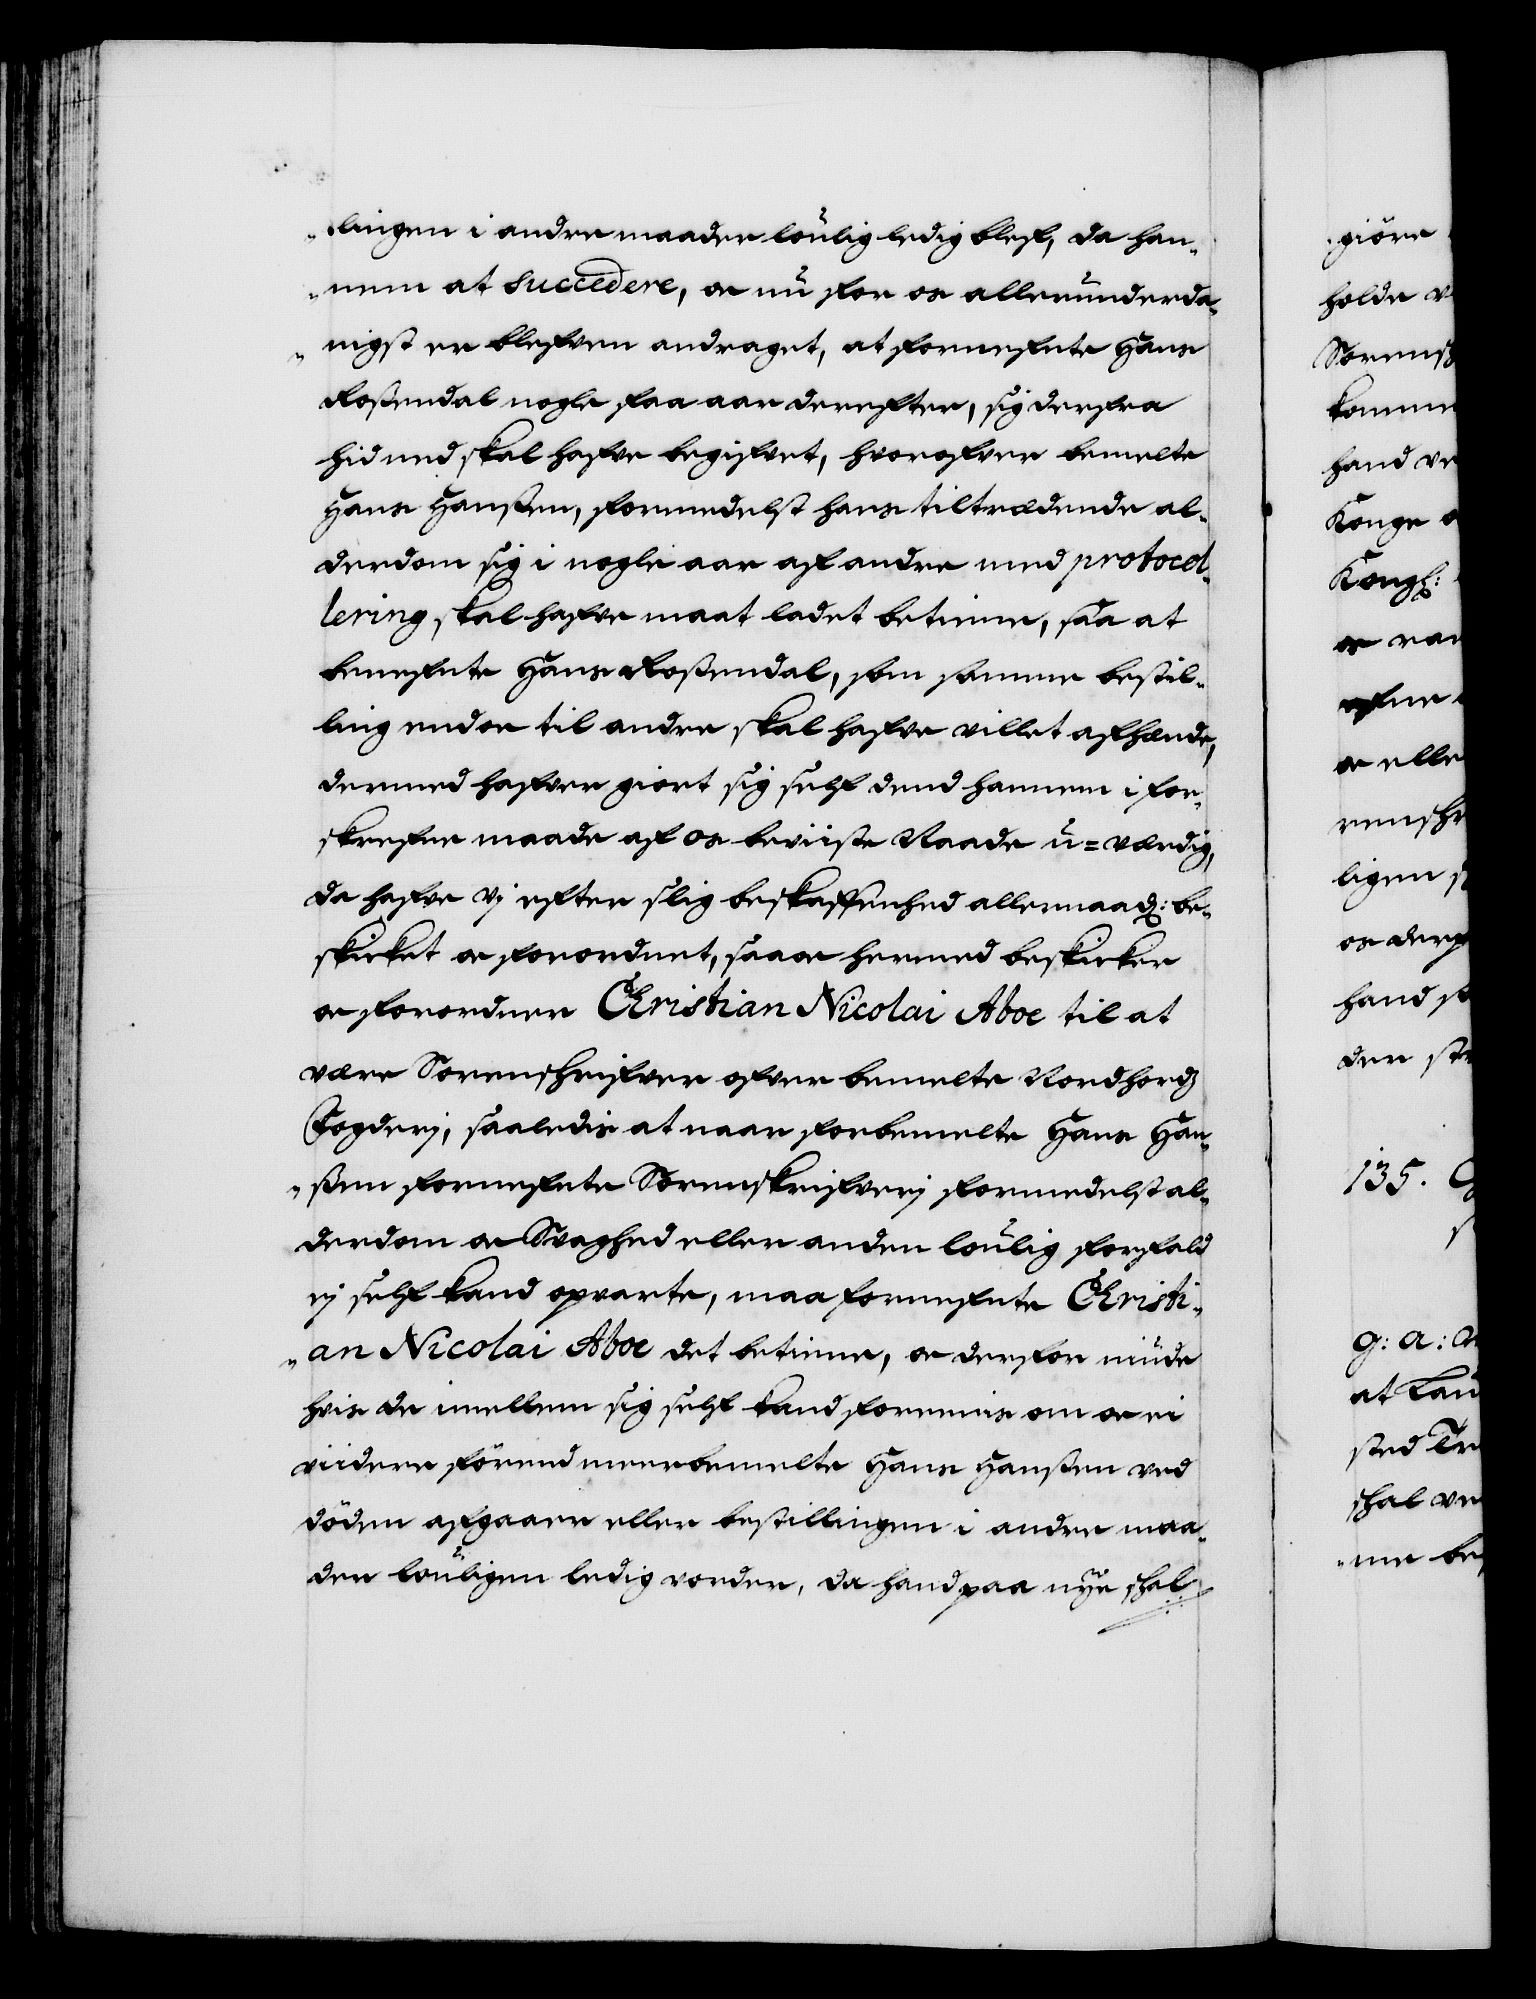 „lingen i andre maader loulig ledig blef, da han„
„nem at succedere, oc nu for os allerunderda„
„nigst er blefven andraget, at fornefnte Hans
Roßendal nogle faa aar derefter, sig derfra
hid ned skal hafve begifvet, hvorofver bemelte
Hans Hanßen, formedelst hans tiltrædende al„
derdom sig i nogle aar af andre med protocol„
lering skal hafve maat ladet betienne, saa at
benefnte Hans Roßendal, som samme bestil„
ling endoc til andre skal hafve villet afhænde,
dermed hafver giort sig self dend hannem i for„
skrefne maade af os beviiste Naade u=værdig,
da hafve Vj efter slig beskaffenhed allernaad: be„
skicket oc forordnet, saa oc hermed beskicker
oc forordner Christian Nicolai Aboe til at
være Sorenskrifver ofver bemelte Nordhord
Fogderj, saaledis at naar forbemelte Hans Han„
„ßen fornefnte Sorenskrifverj formedelst al„
derdom oc Svaghed eller anden loulig forfald
ej self kand opvarte, maa fornefnte Christi„
„an Nicolai Aboe det betienne, oc derfor niude
hvis de imellem sig self kand foreenis om oc ei
viidere förend meerbemelte Hans Hanßen ved
döden afgaaer eller bestillingen i andre maa„
der louligen ledig vorder, da hand paa nye skal
giöre
holde
Sorensk
komme
hand
Konge
Kongl:
elle
ligen
hand
der
135.
g: a:
at
sted
skal
„me